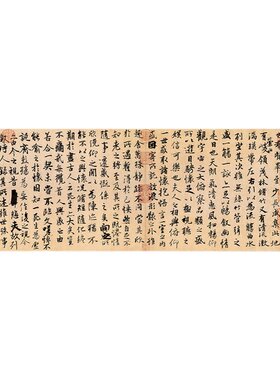 有崇山峻領茂林脩竹又有清流激
湍暎帶左右引以為流觴曲水
列坐其次雖無絲竹管弦之
盛一觴一詠亦足以暢敘幽情
是日也天朗氣清惠風和暢仰
觀宇宙之大俯察品類之盛
所以遊目騁懷足以極視聽之
娛信可樂也夫人之相與俯仰
一世或取諸懷抱悟言一室之內
或因寄所託放浪形骸之外雖
趣舍萬殊靜躁不同當其欣
於所遇蹔得於己怏然自足不
知老之將至及其所之既惓情
隨事遷感慨係之矣向之所
欣俛仰之閒以為陳迹猶不
能不以之興懷況脩短隨化終
期於盡古人云死生亦大矣豈
不痛哉每攬昔人興感之由
若合一契未嘗不臨文嗟悼不
能喻之於懷固知一死生為虛
誕齊彭殤為妄作後之視今
亦由今之視昔悲夫故列
敘時人錄其所述雖世殊事